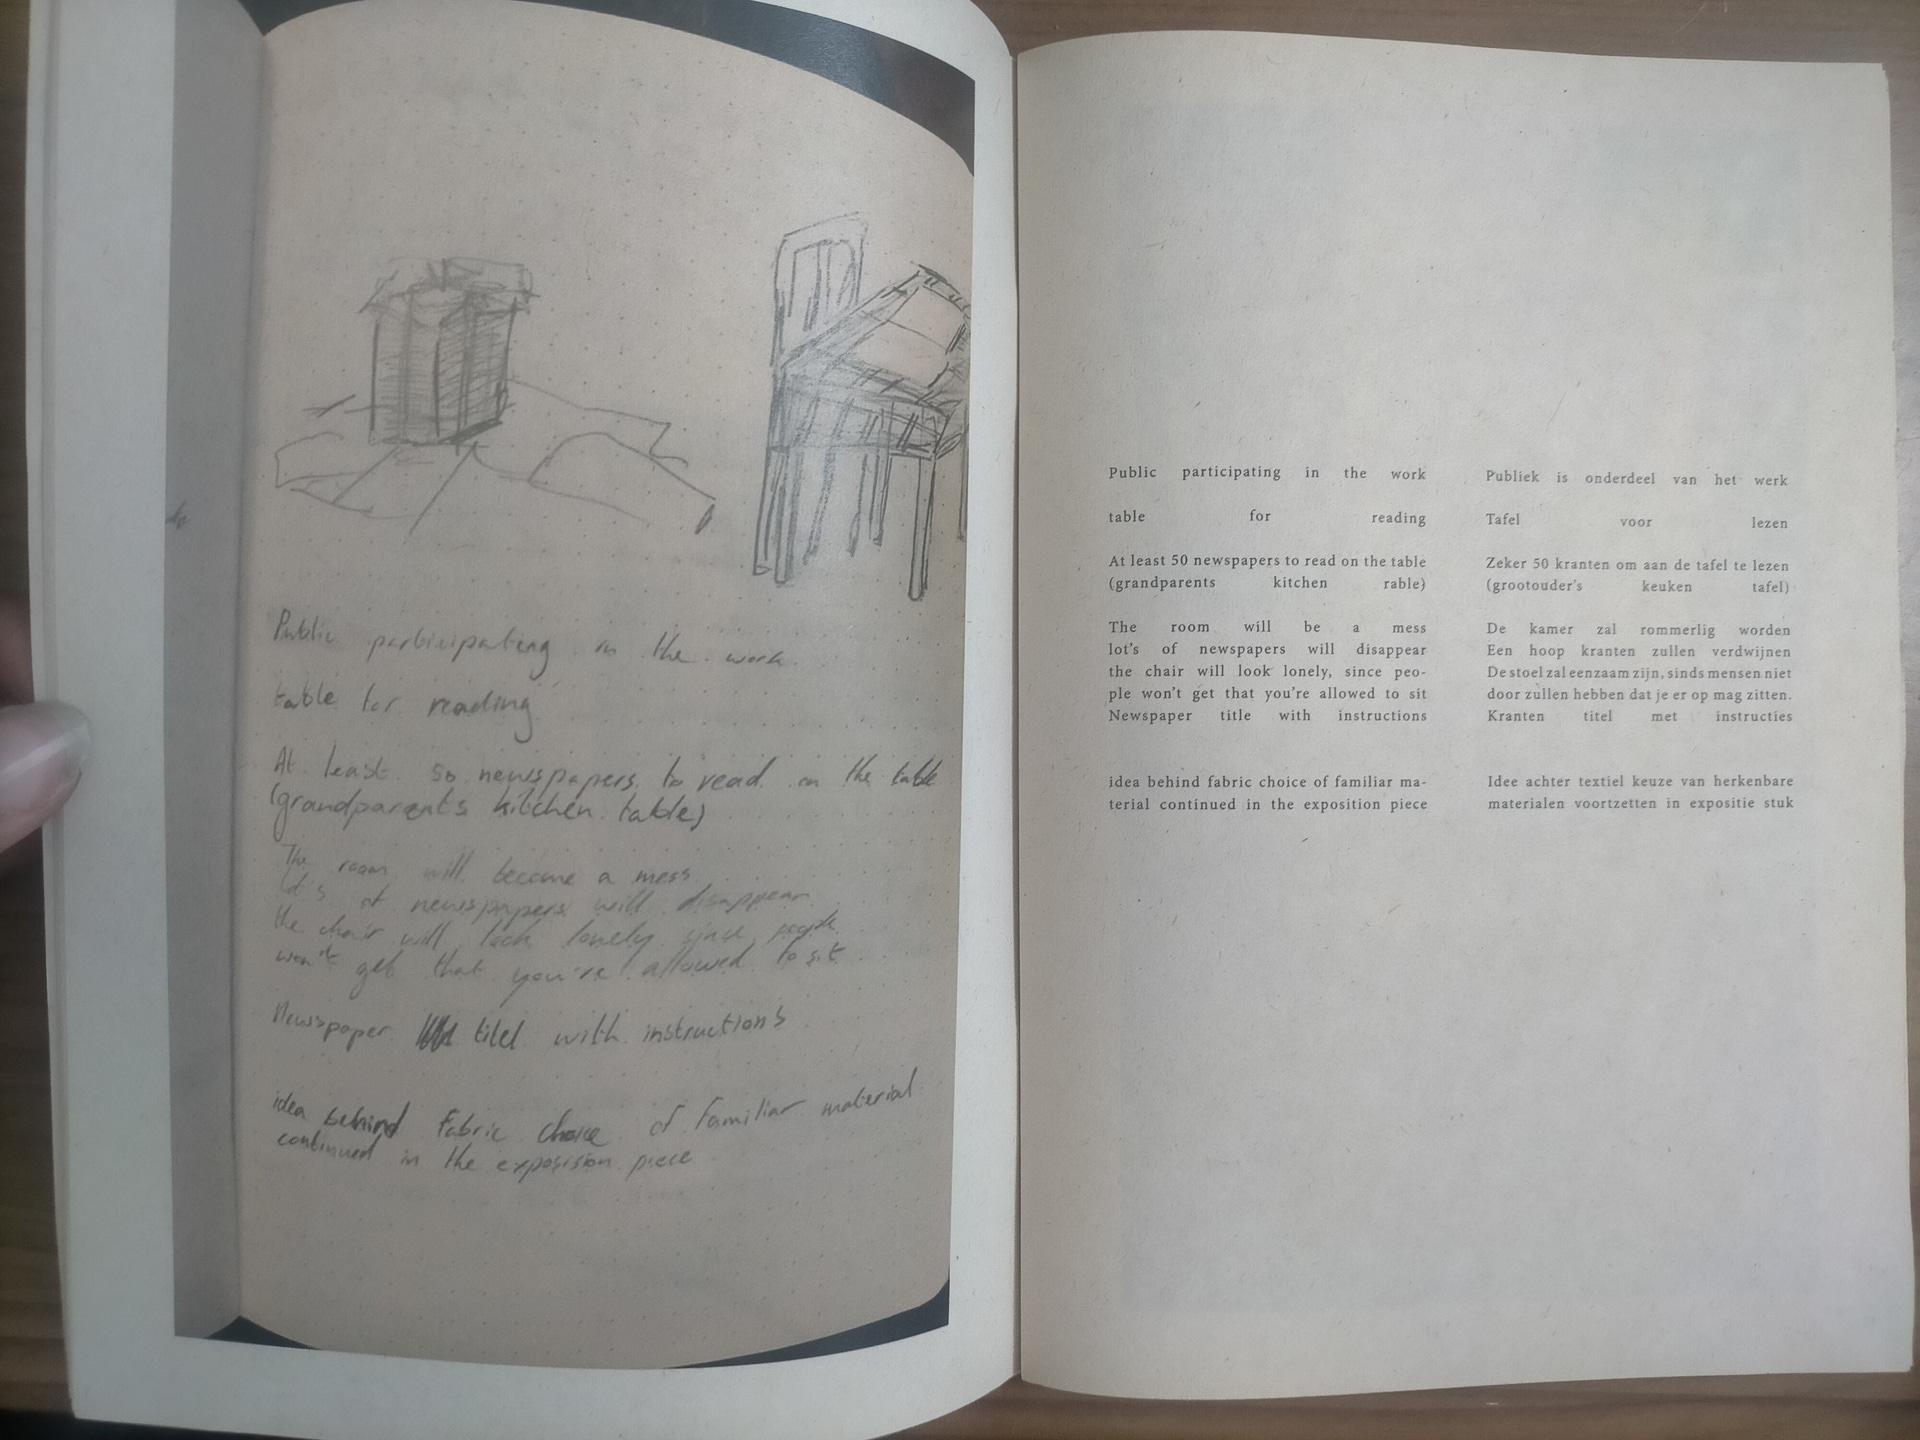 Public participating in the work
table for reading
At least 50 newspapers to read on the table
(grandparents kitchen table)
The room will become a mess
lot's of newspapers will disappear
the chair will look lonely since people
won't get that you're allowed to sit
Newspaper titel with instructions
idea behind fabric choice of familiar material
continued in the exposision piece
Public participating in the work
table for reading
At least 50 newspapers to read on the table
(grandparents kitchen rable)
The room will be a mess
lot's of newspapers will disappear
the chair will look lonely, since peo-
ple won't get that you're allowed to sit
Newspaper title with instructions
idea behind fabric choice of familiar ma-
terial continued in the exposition piece
Publiek is onderdeel van het werk
Tafel voor lezen
Zeker 50 kranten om aan de tafel te lezen
(grootouder's keuken tafel)
De kamer zal rommerlig worden
Een hoop kranten zullen verdwijnen
De stoel zal eenzaam zijn, sinds mensen niet
door zullen hebben dat je er op mag zitten.
Kranten titel met instructies
Idee achter textiel keuze van herkenbare
materialen voortzetten in expositie stuk